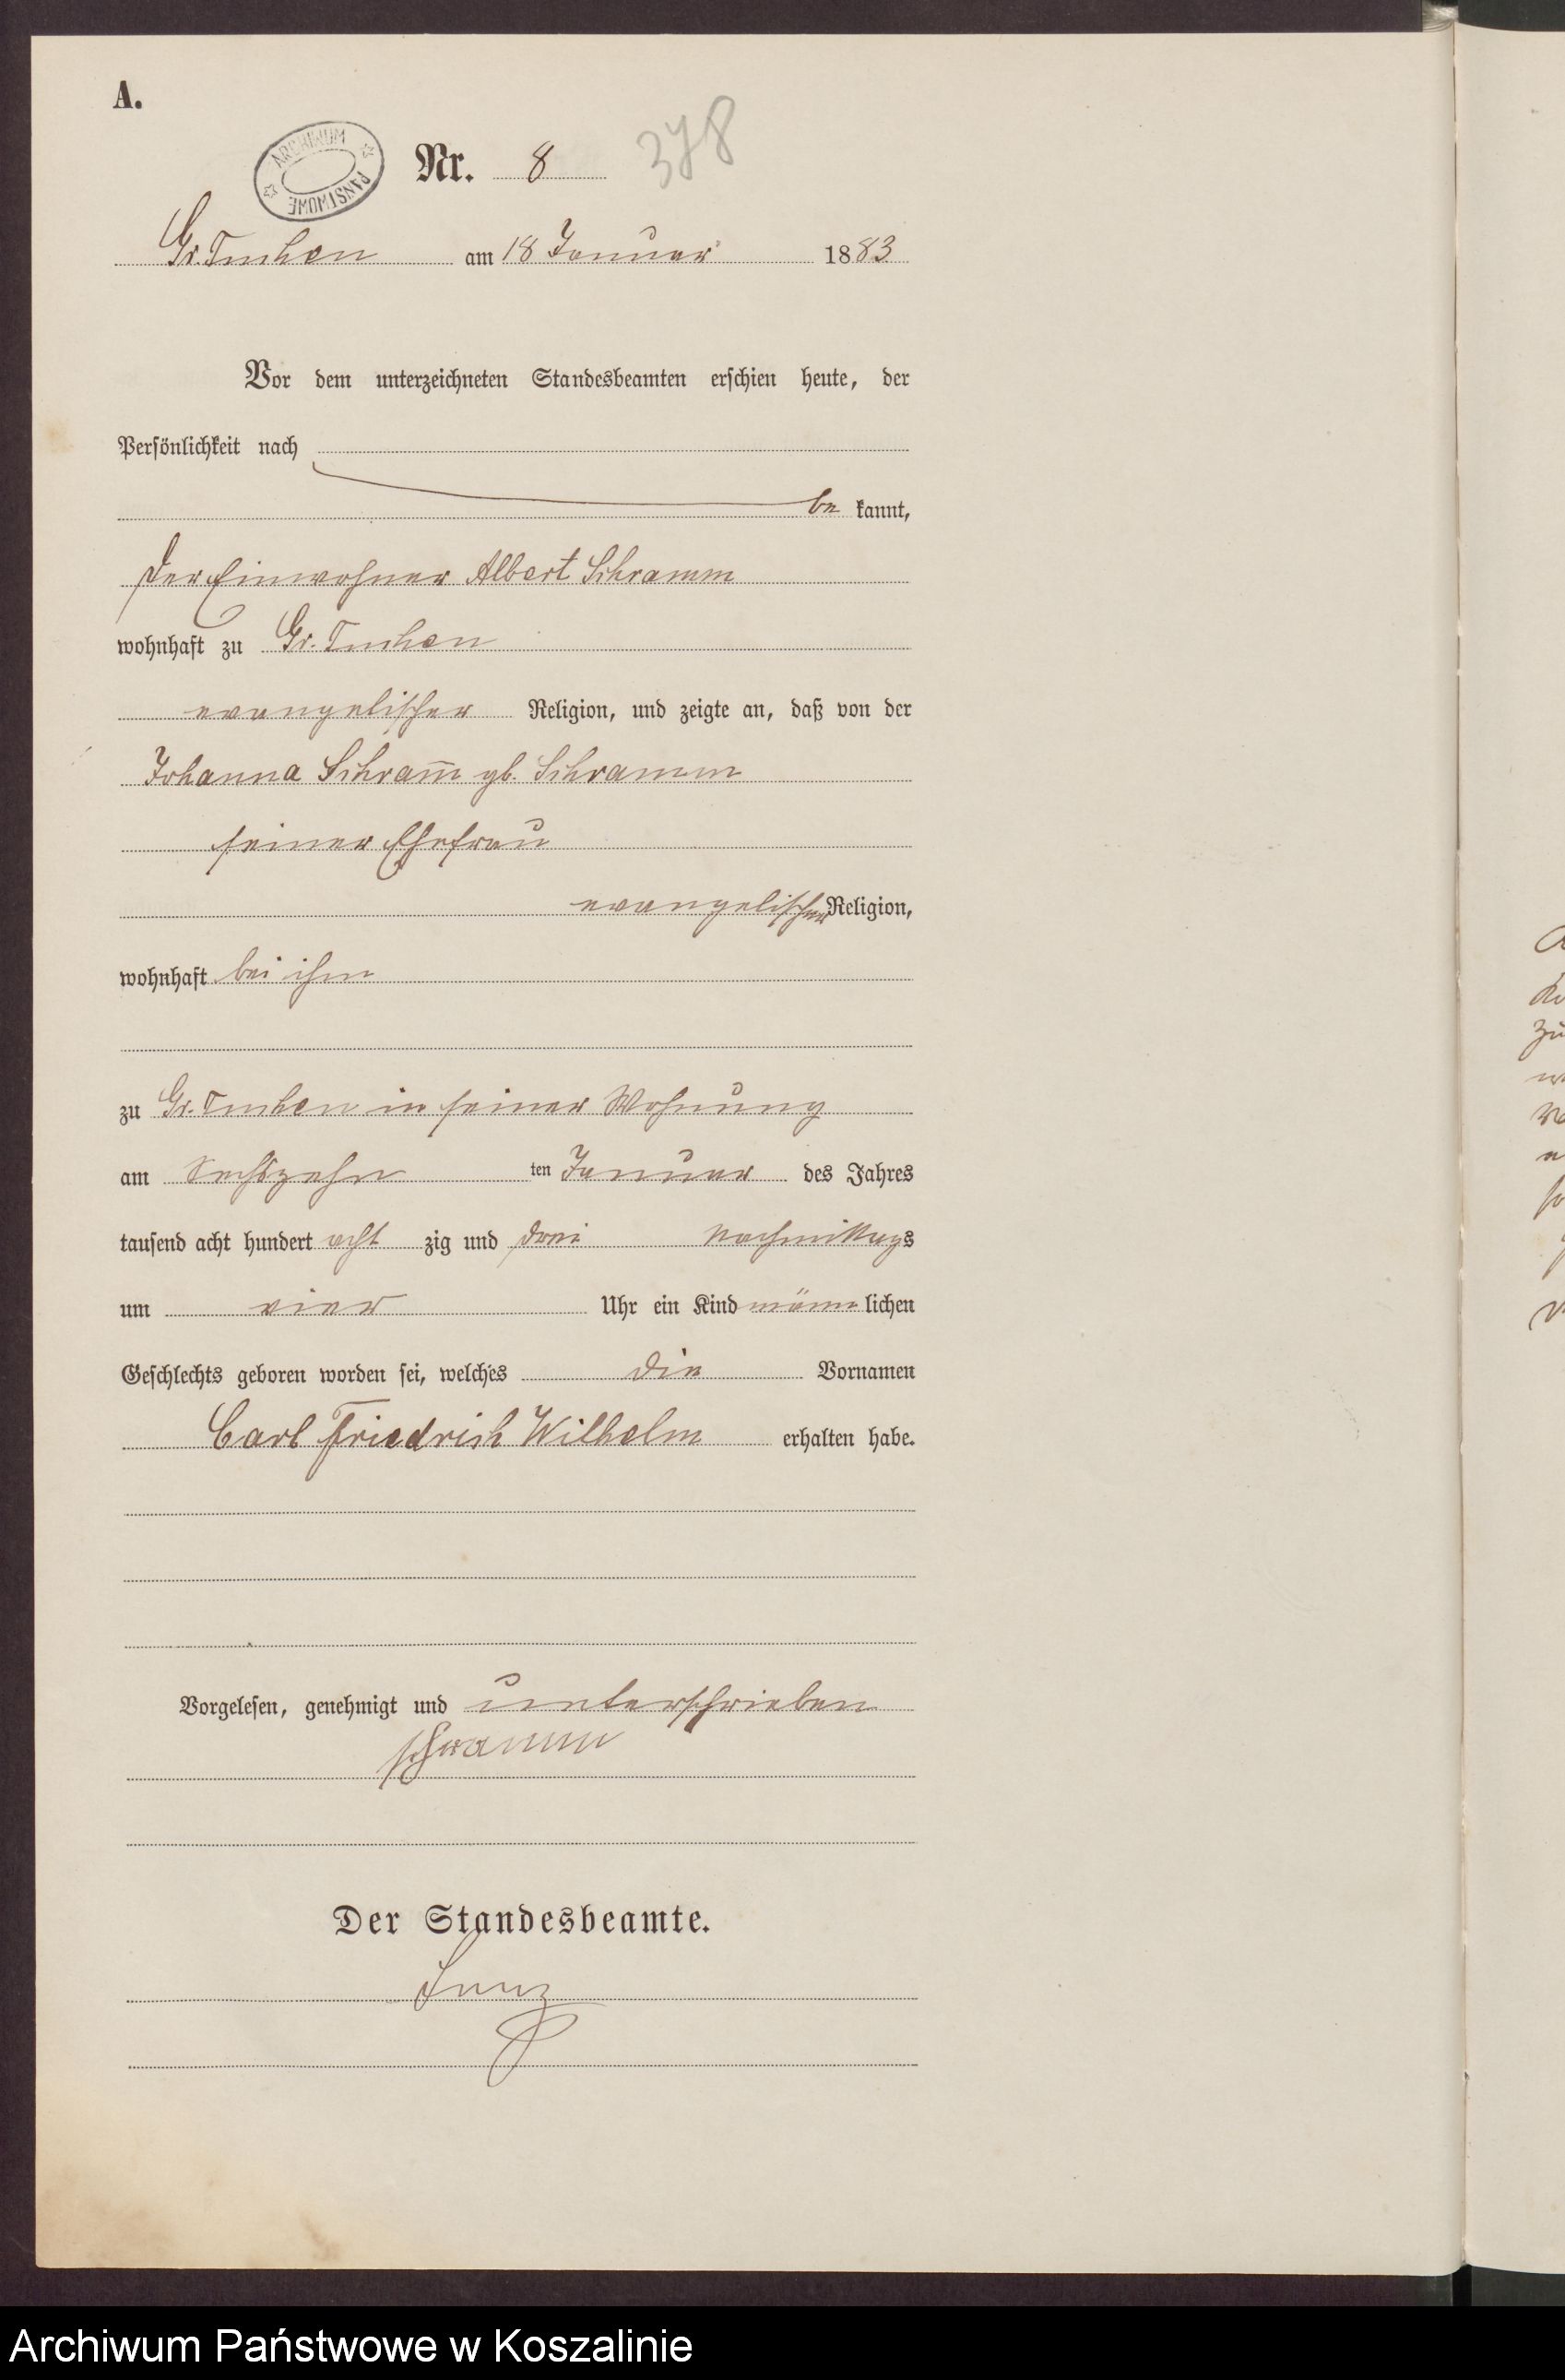 A.
ARCHIWUM PAŃSTWOWE
Nr. 8 378
Gr. Tuchen am 18 Januar 1883
Vor dem unterzeichneten Standesbeamten erschien heute, der
Persönlichkeit nach
be kannt,
der Einwohner Albert Schramm
wohnhaft zu Gr. Tuchen
evangelischer Religion, und zeigte an, daß von der
Johanna Schram̅ gb. Schramm
seiner Ehefrau
evangelischer Religion,
wohnhaft bei ihm
zu Gr. Tuchen in seiner Wohnung
am Sechszehn ten Januar des Jahres
tausend acht hundert acht zig und drei Nachmittags
um vier Uhr ein Kind männ lichen
Geschlechts geboren worden sei, welches die Vornamen
Carl Friedrich Wilhelm erhalten habe.
Vorgelesen, genehmigt und unterschrieben
schramm
Der Standesbeamte.
Archiwum Państwowe w Koszalinie